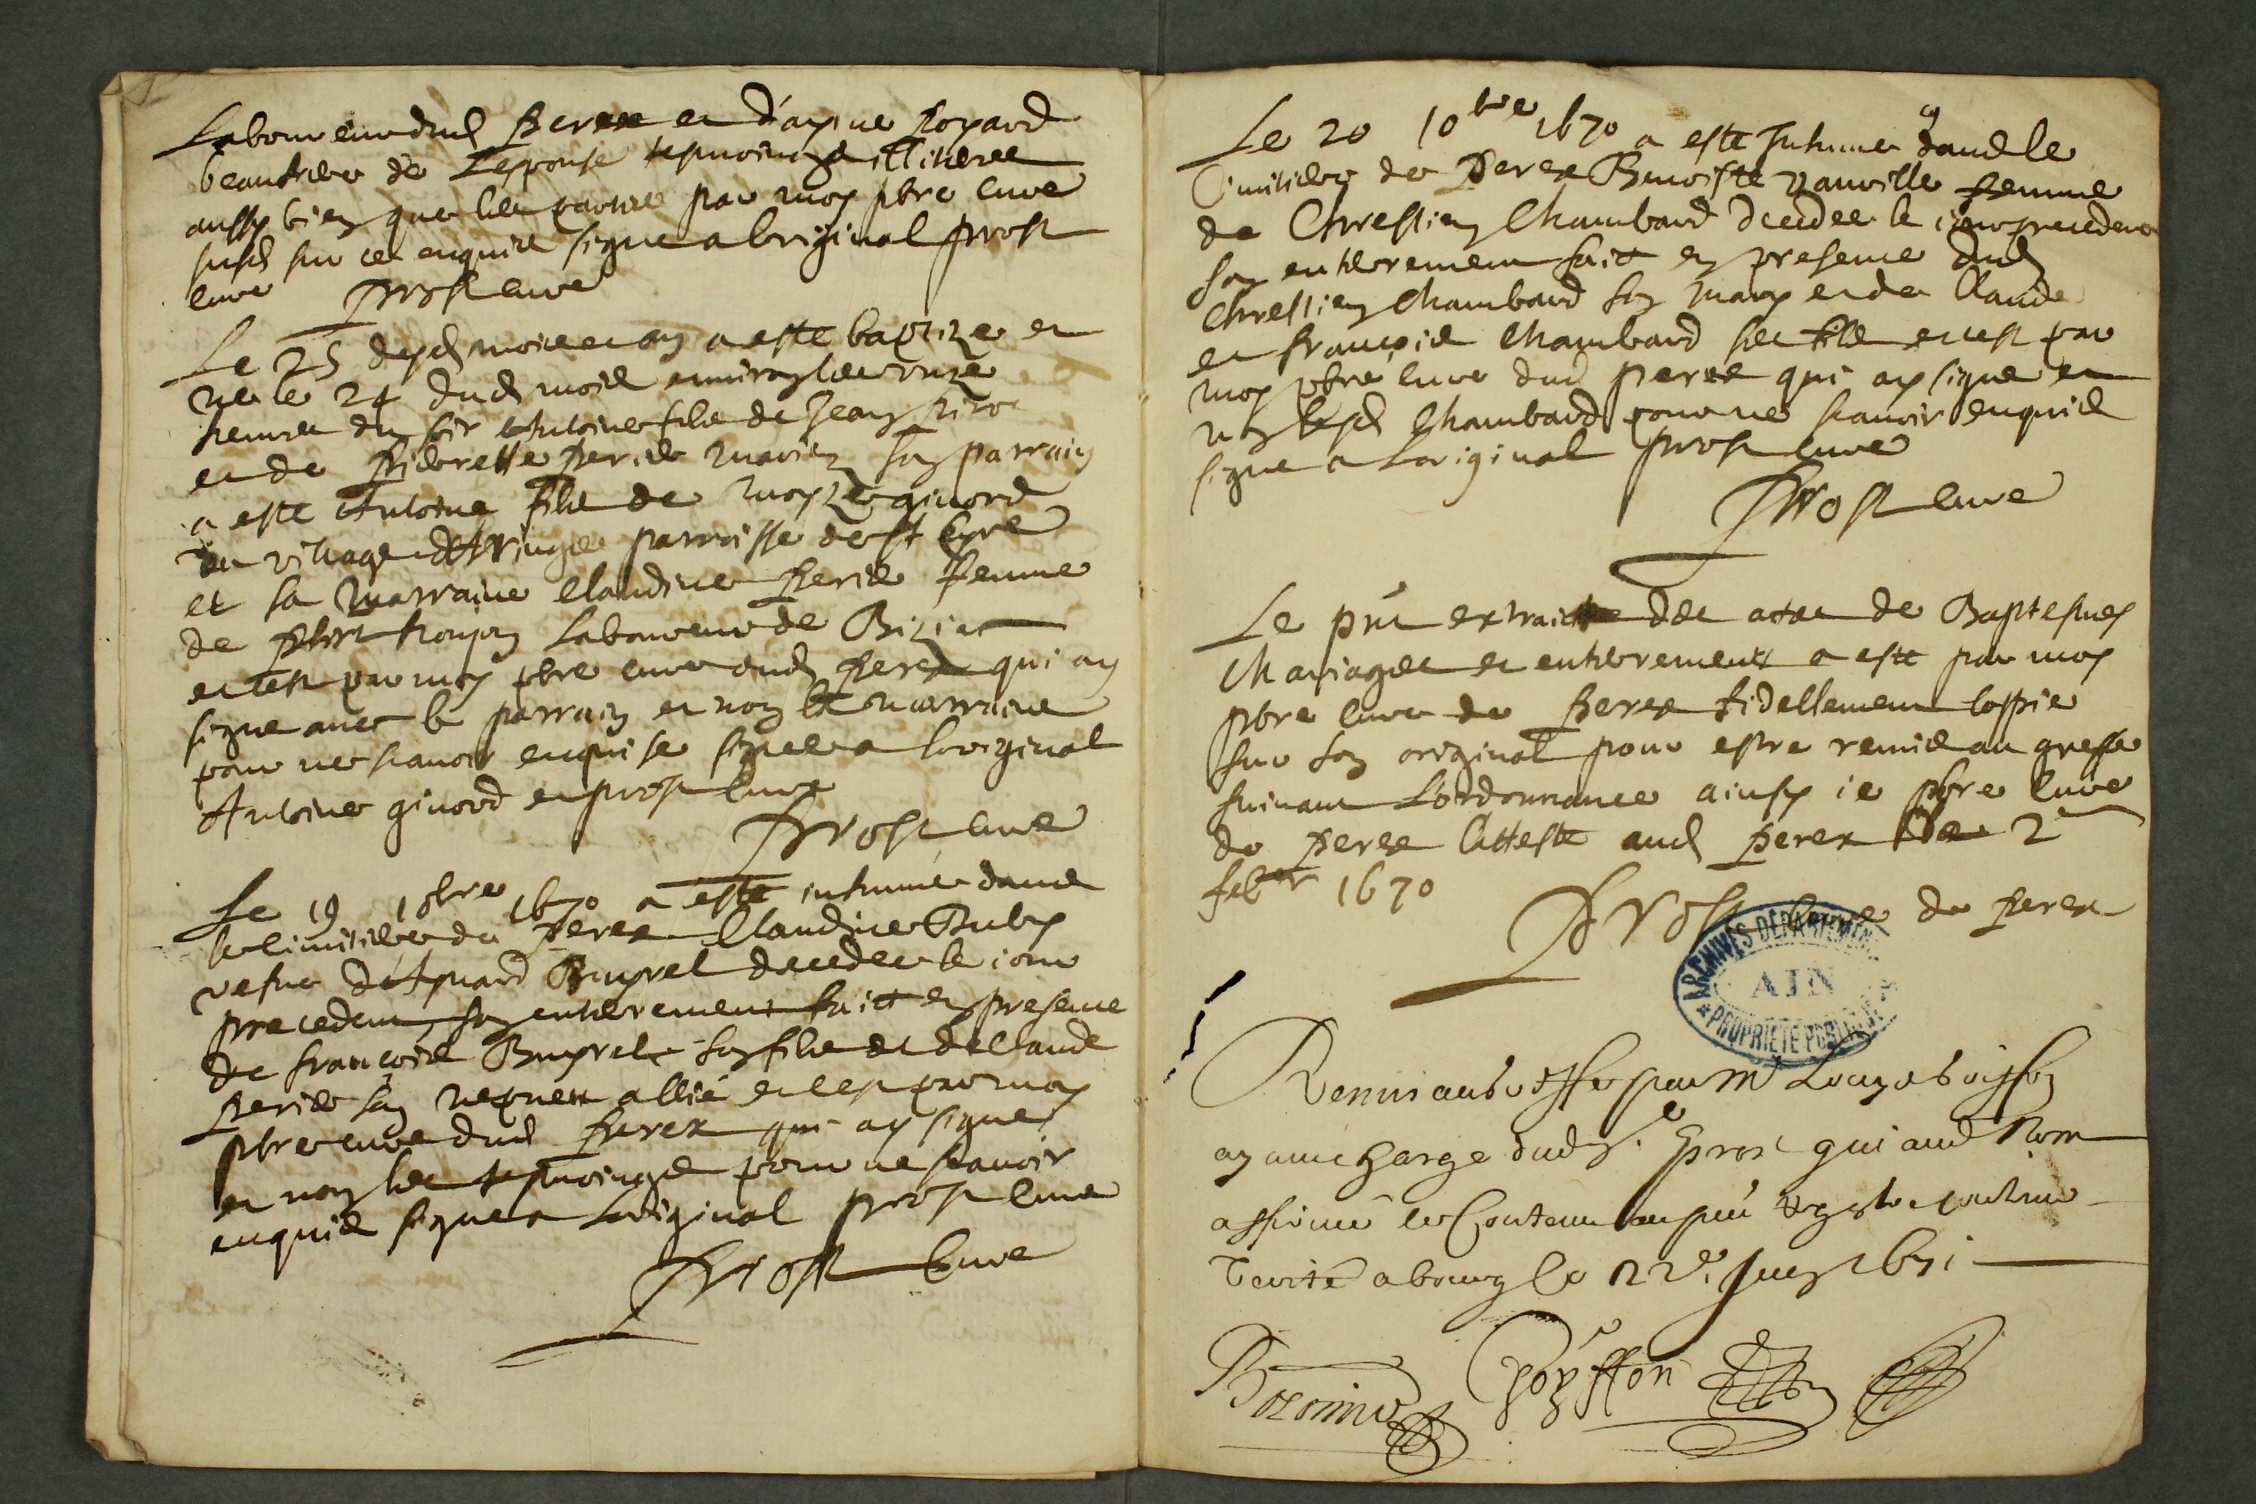 Laboureur dud Perex et d'ayme Royard
beaufrere de Lespouse tesmoings illiteres
aussy bien que les parties par moy pbre cure
susd sur ce enquis signe a loriginal Prost
cure Prost cure
Le 25 desd mois et an a este baptize et
ne le 24 dud mois environ les onze
heures du soir Antoine fils de Jean
et de Pierrette Perier maries son parrain
a este Antoine fils de Moyze givord
du village paroisse de st Cyre
et sa marraine Claudine Perier femme
de Laboureur de Biziat
et c'est par moy pbre cure dud Perex qui ay
signe avec le parrain et non la marraine
pour ne scavoir enquise signee a loriginal
Antoine givord et prost cure
Prost cure
Le 19 10bre 1670 a este inhumée dans
le cimitiere de Perex Claudine
vefve Buyret decedee le jour
precedent son enterrement faict en presence
de françois Buyret son fils et de Claude
Perier son nepveu allié et c'est par moy
pbre cure dud Perex qui ay signe
et non les tesmoings pour ne scavoir
enquis signe a loriginal prost cure
Prost Cure
Le 20 10bre 1670 a este Inhumee dans le
Cimitiere de Perex Benoiste femme
de Chrestien Chambard decedee le jour precedent
son enterrement fait en presence dud
Chrestien Chambard son mary et de Claude
et françois Chambard ses fils et c'est par
moy pbre cure dud perex qui ay signe et
non lesd Chambard pour ne scavoir enquis
signe a Loriginal prost cure
Prost cure
Le pnt extraict des actes de Baptesmes
Mariages et enterrements a este par moy
pbre cure de Perex fidellement coppie
sur son original pour estre remis au greffe
suivant L'ordonnance ainsy je pbre cure
de Perex Atteste aud Perex le 2
feber 1670
Prost cure de Perex
ARCHIVES DEPARTEMENTALES
AIN
PROPRIETE PUBLIQUE
Remis au greffe par Me
ayant charge dud Sr. Prost qui aud Nom
affirmé le Contenu au pnt contenir
Verité a bourg le 22e. 1671